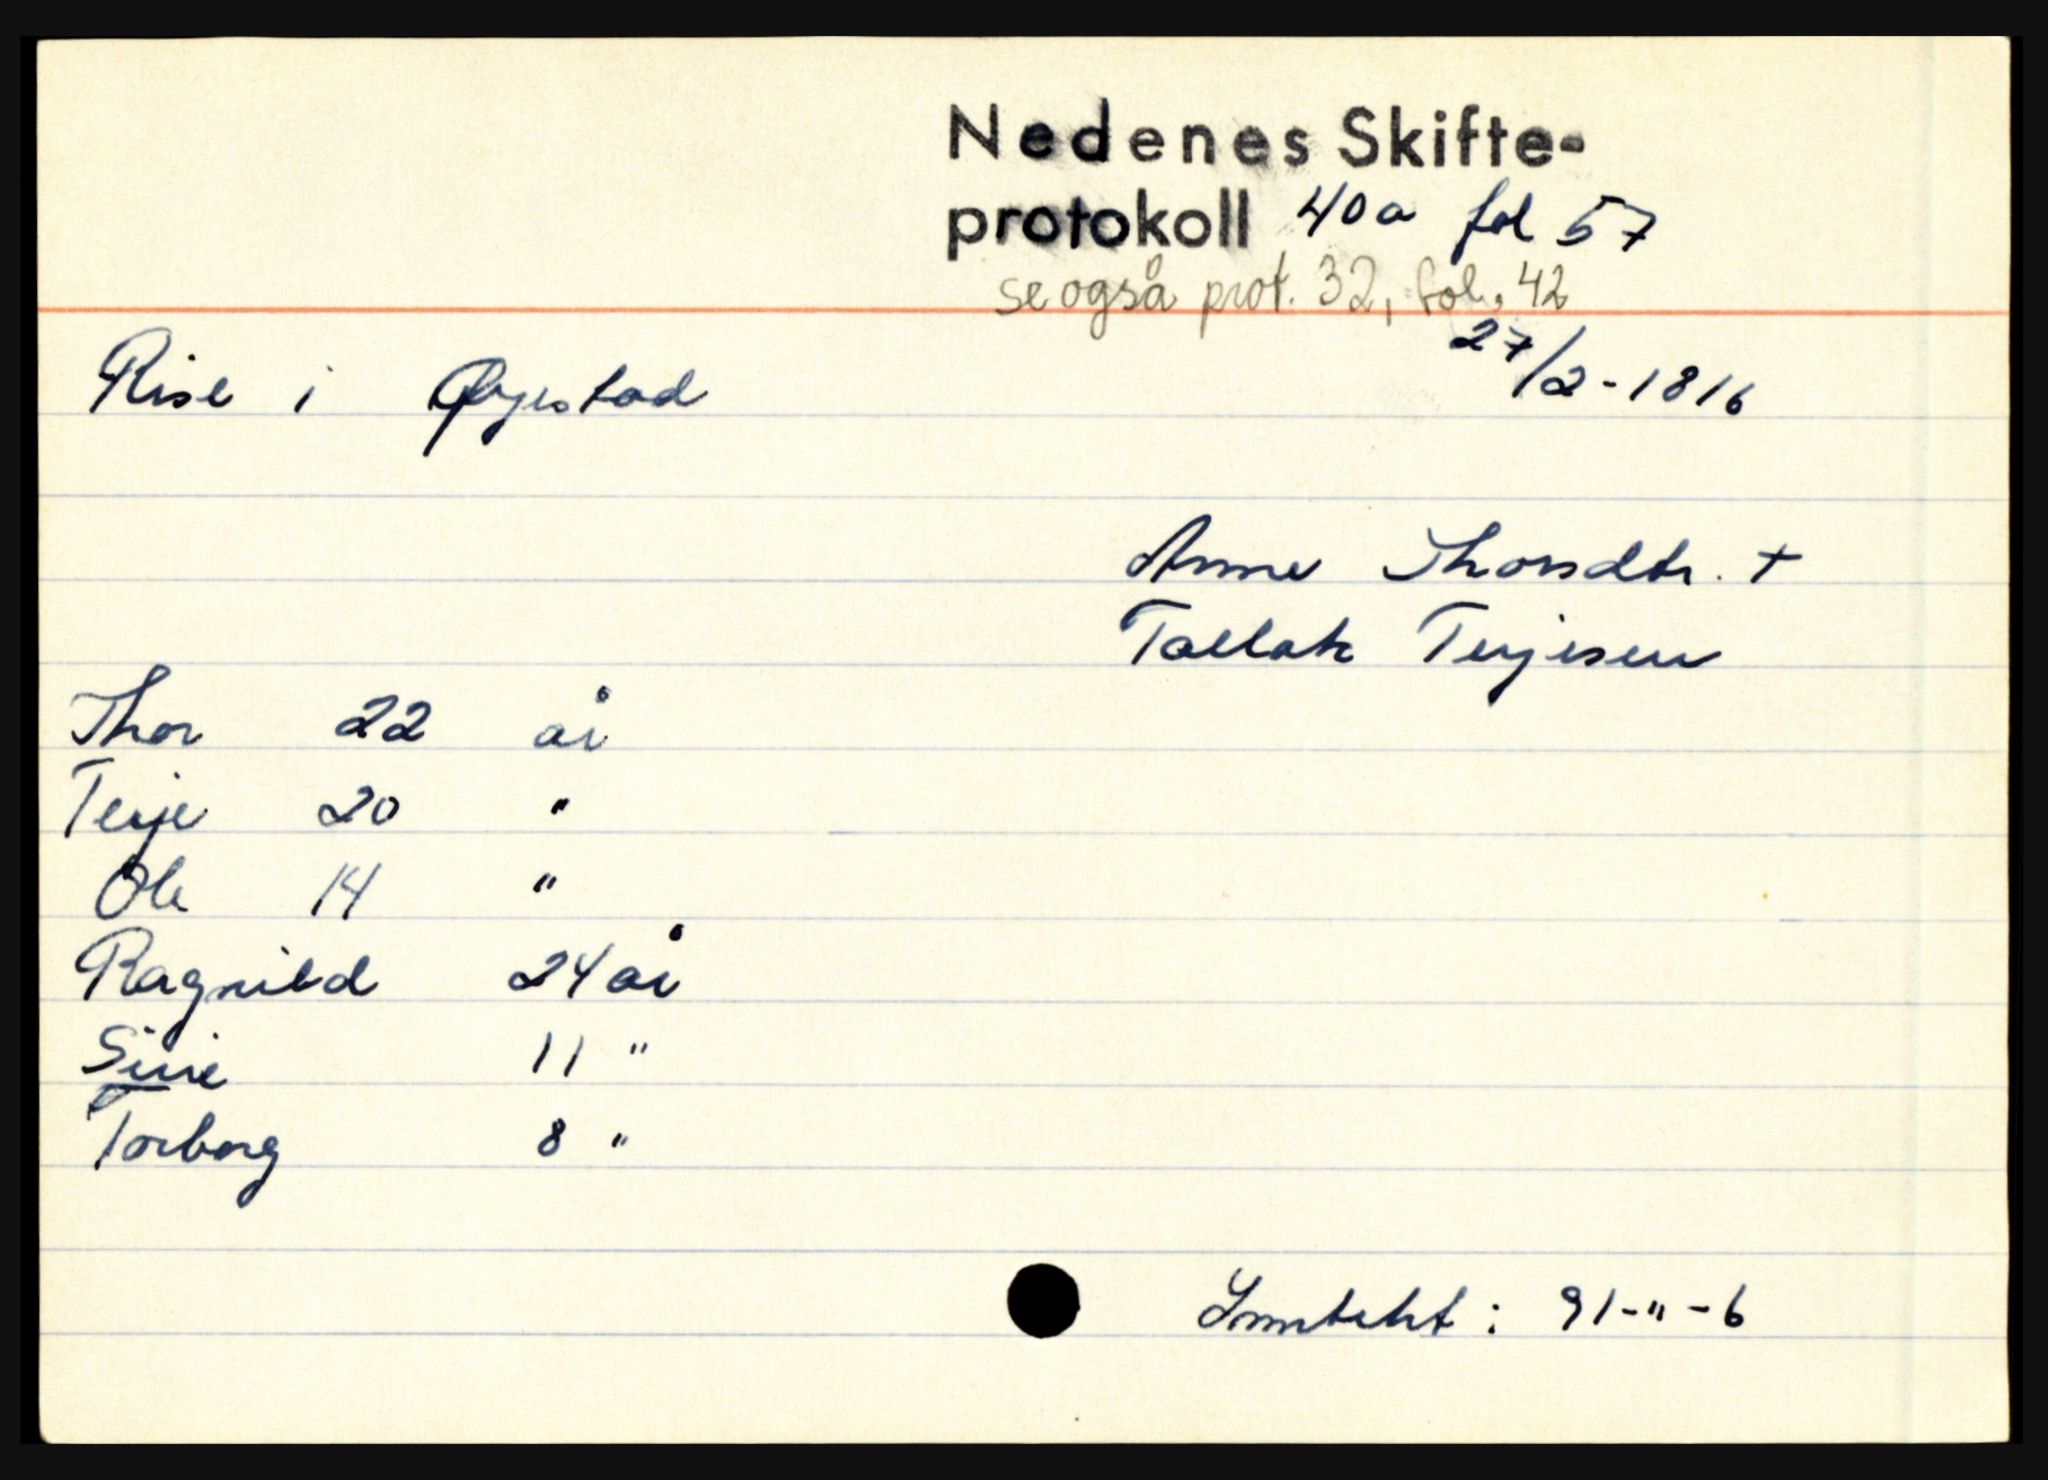 Nedenes Skifte-
protokoll 40a fol 57
se også prot. 32, fol. 42
27/2-1816
Rise i Øyestad
Anne Thorsdtr. +
Tallak Terjesen
Thor 22 år
Terje 20 "
Ole 14 "
Ragnild 24 år
Sirie 11 "
Torborg 8 "
Inntekt: 91-"-6